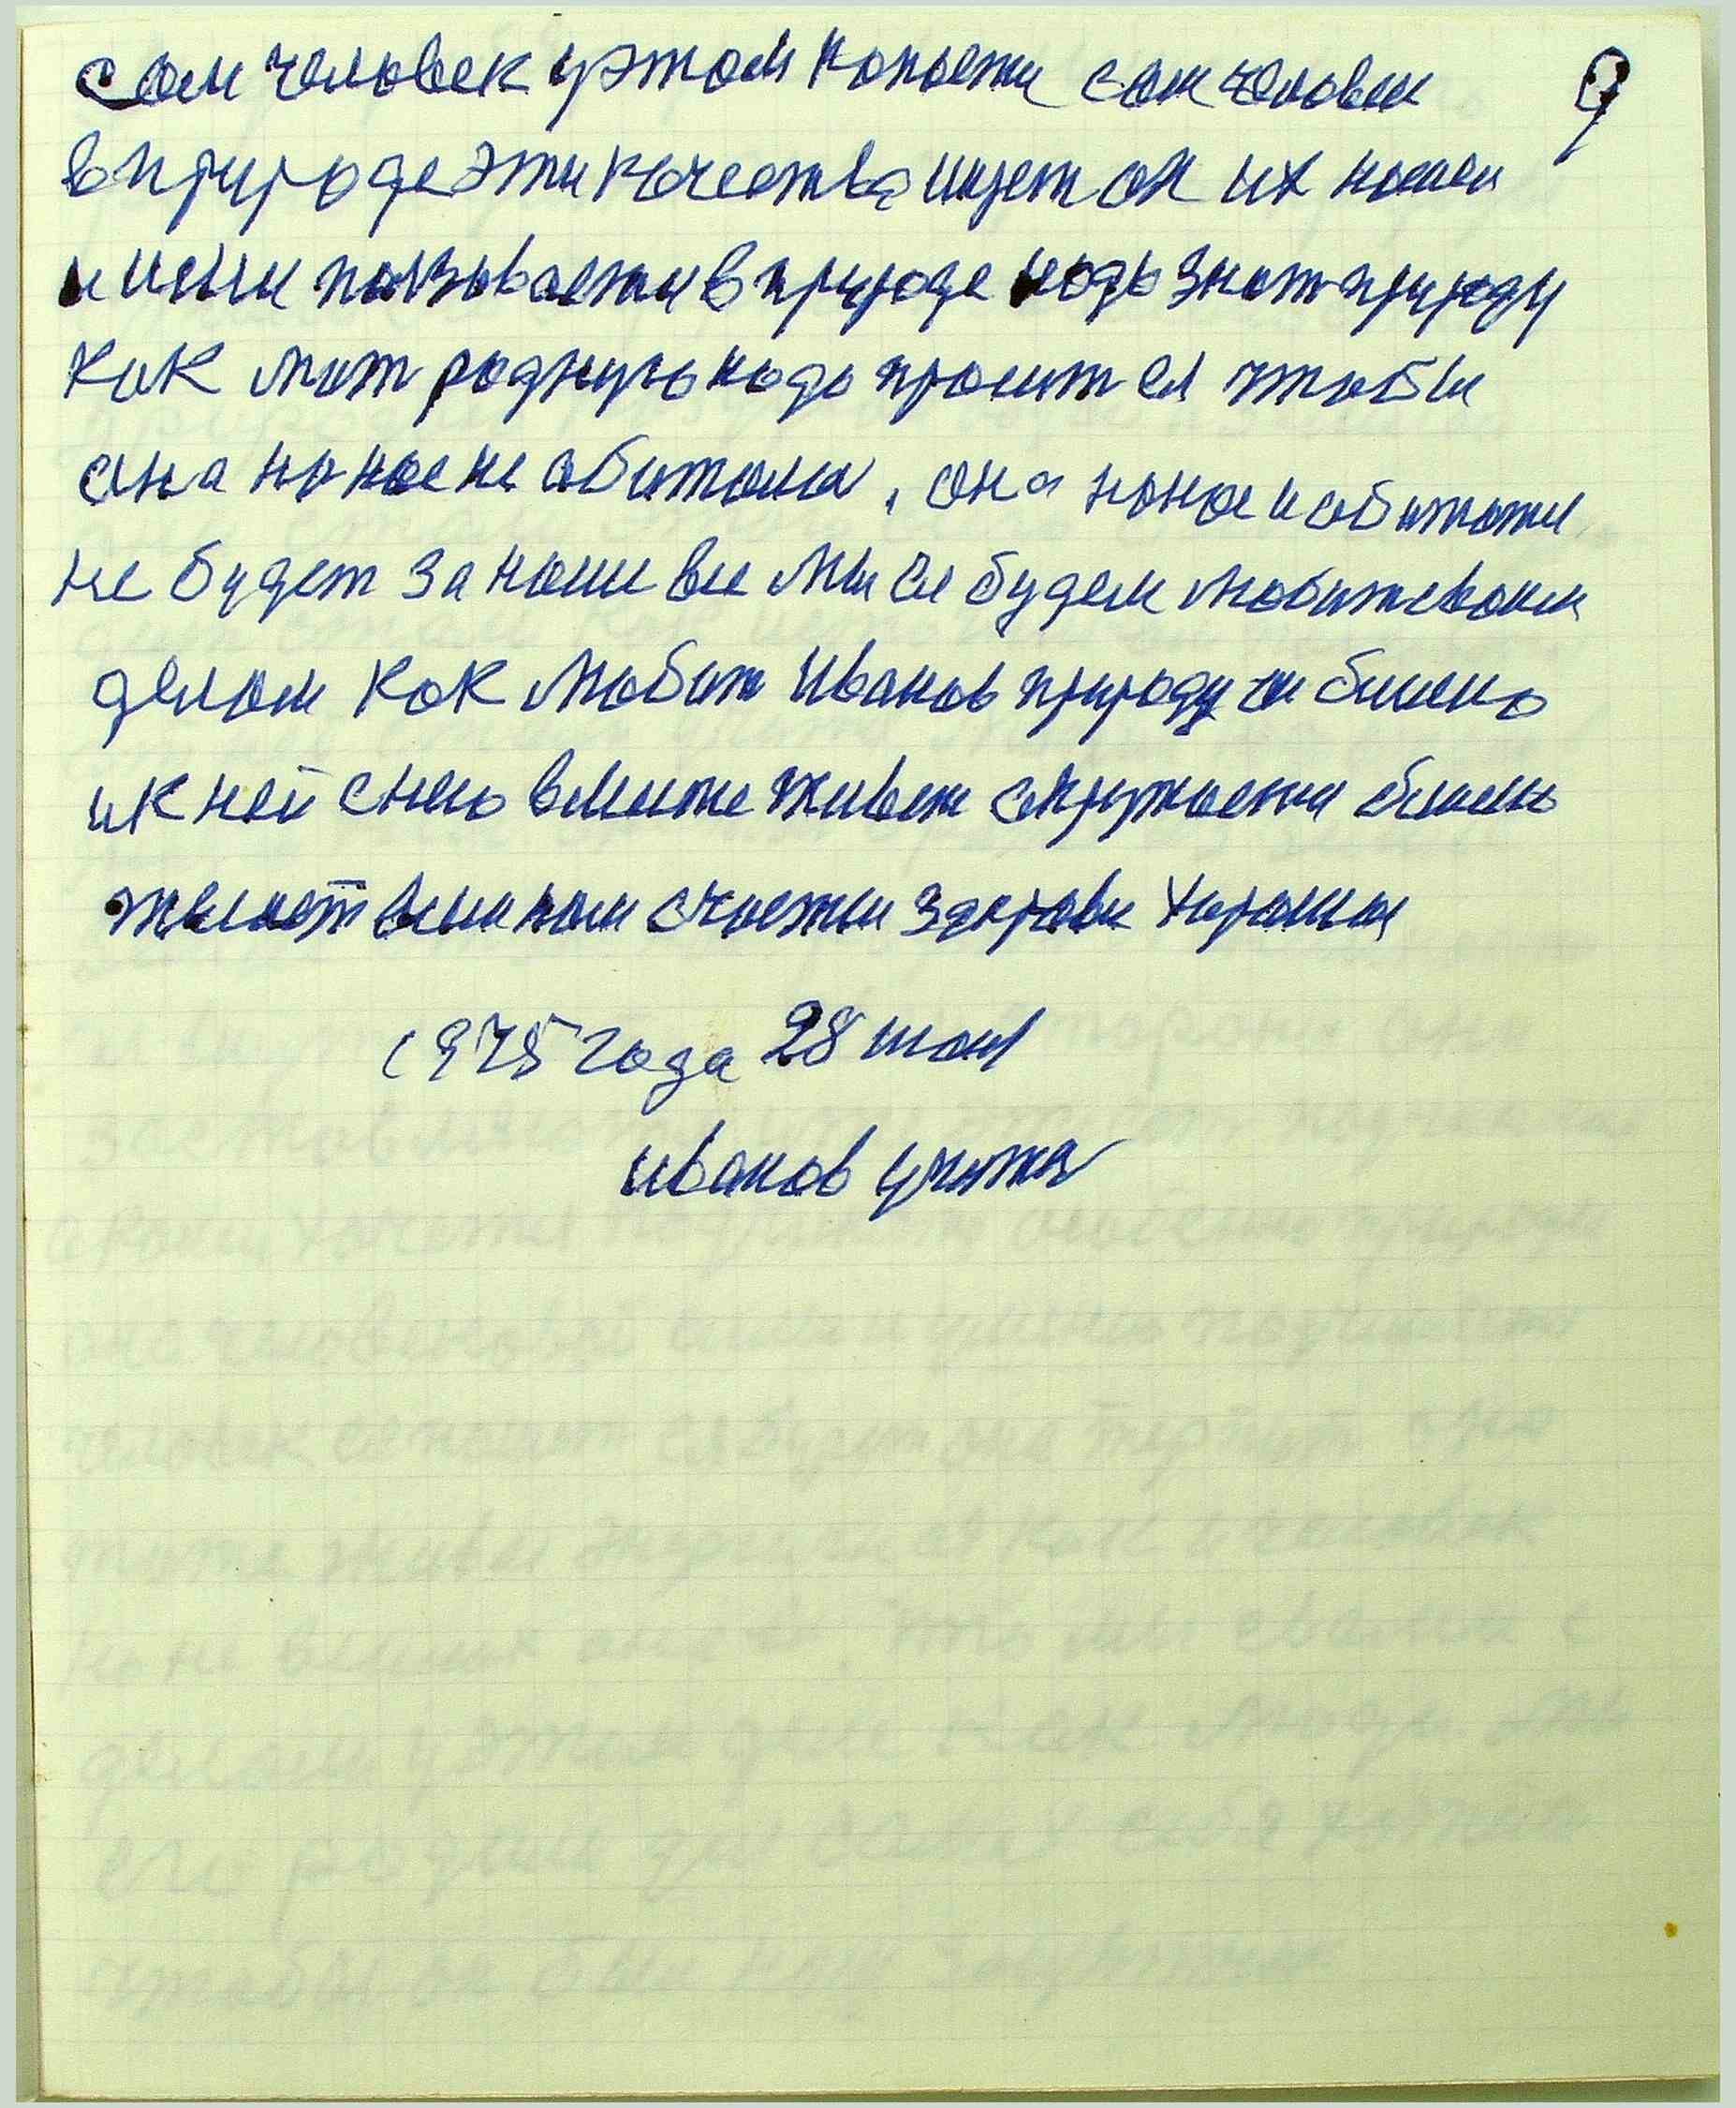 сам человек у этом копаети сам человек 9
в природе эти качества ищет он их нашел
и ими пользываети в природе надо знат природу
как мат родную надо проситея чтобы
она на нас не абитала, она на нас и абитати
не будет за наши вси мы ее будем любитеваим
делом как любит Иванов природу
и к ней снею вмести живет окружаети
желает всим нам счасти здорови хорошои
1975 года 28 мая
Иванов учител